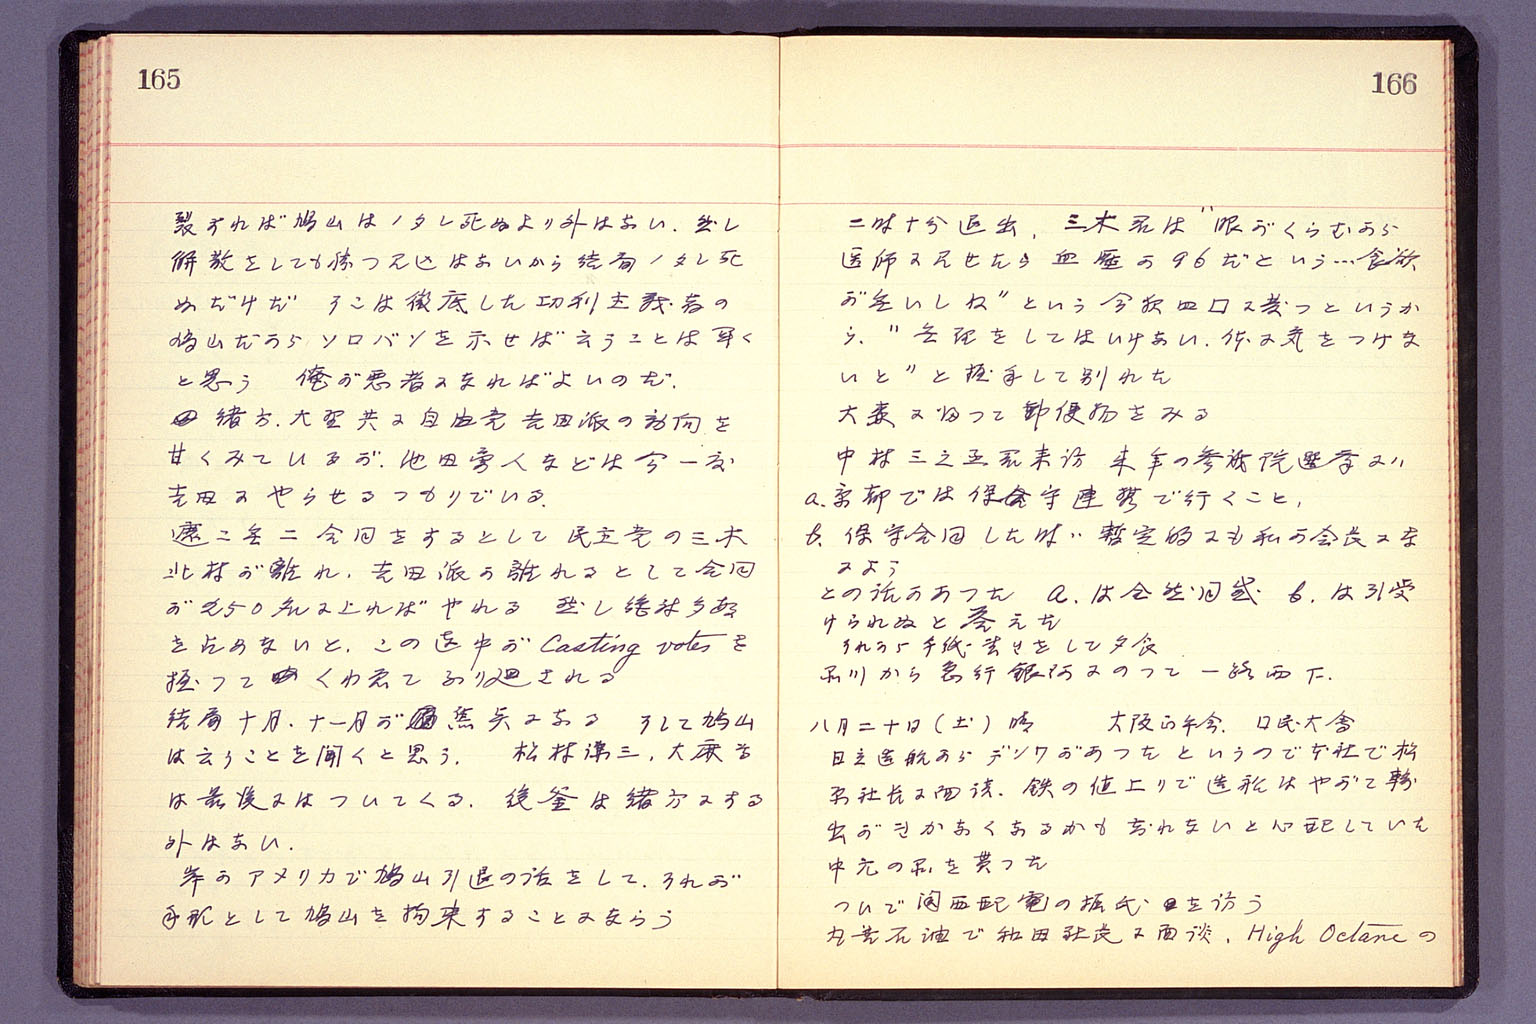 165
裂すれば鳩山はノタレ死ぬより外はない．然し
解散をしても勝つ見込はないから結局ノタレ死
ぬだけだ　そこは徹底した功利主義者の
鳩山だから ソロバンを示せば云うことは早く
と思う　俺が悪者になればよいのだ．
緒方．大野共に自由党吉田派の動向を
甘くみているが．池田勇人などは今一度
吉田にやらせるつもりでいる．
合同をするとして民主党の三木
北村が離れ．吉田派が離れるとして合同
が250名によればやれる　然し絶対多数
を占めないと．この連中が Casting votes を
握って くわえて ふり廻される
結局十月．十一月が焦点になる　そして鳩山
は云うことを聞くと思う．　松村謙三．大麻等
は最後にはついてくる．後釜は緒方にする
外はない．
岸がアメリカで鳩山引退の話をして．それが
手形として鳩山を拘束することになろう
166
二時十分退出．三木君は"眼がくらむから
医師に見せたら 血圧が96だという…食欲
がないしね"という 今夜四口に発つというか
ら．"無理をしてはいけない．体に気をつけな
いと"と握手して別れた
大森に帰って郵便物をみる
中村三之丞君来訪　来年の参議院選挙に
a. 京都では保守連携で行くこと，
b. 保守合同した時 暫定的にも私が会長にな
るよう
との話があった　a. は全然同感　b. は引受
けられぬと答えた
それから手紙書きをして夕食
品川から急行銀河にのって一路西下．
八月二十日（土）晴　　大阪正午会．口民大會
日立造船からデンワがあったというので本社で松
原社長に面談．鉄の値上りで造船はやがて輸
出がきかなくなるかも知れないと心配していた
中元の品を貰った
ついで関西配電の堀氏を訪う
丸善石油で和田社長に面談．High Octane の